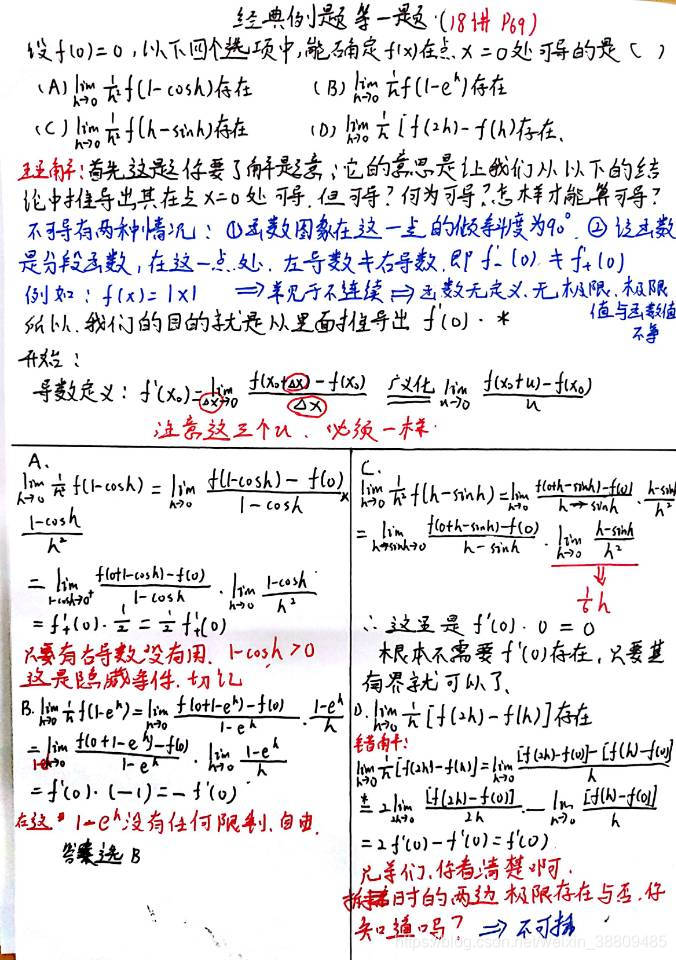 经典例题第一题.(18讲 P69)
设f(0)=0,以下四个选项中,能否确定f(x)在点x=0处可导的是( )
(A) lim h→0 1/h² f(1-cosh)存在 (B) lim h→0 1/h f(1-e^h)存在
(C) lim h→0 1/h² f(h-sinh)存在 (D) lim h→0 1/h [f(2h)-f(h)存在.
正确解:首先这题你要了解题意;它的意思是让我们从以下的结
论中推导出其在点x=0处可导.但可导?何为可导?怎样才能算可导?
不可导有两种情况:①函数图象在这一点的倾斜度为90°.②该函数
是分段函数,在这一点处.左导数≠右导数.即f'₋(0)≠f'₊(0)
例如:f(x)=|x| ⇒常见于不连续⇒函数无定义.无极限.极限
值与函数值
不等
所以.我们的目的就是从里面推导出 f'(0).*
开始:
导数定义: f'(x₀)=lim Δx→0 (f(x₀+Δx)-f(x₀))/Δx 广义化 lim u→0 (f(x₀+u)-f(x₀))/u
注意这三个u.必须一样.
A.
lim h→0 1/h² f(1-cosh) = lim h→0 (f(1-cosh)-f(0))/(1-cosh) ×
(1-cosh)/h²
= lim 1-cosh→0⁺ (f(0+1-cosh)-f(0))/(1-cosh) · lim h→0 (1-cosh)/h²
= f'₊(0)·1/2 = 1/2 f'₊(0)
只要有右导数没有用. 1-cosh>0
这是隐藏条件.切记
B. lim h→0 1/h f(1-e^h) = lim h→0 (f(0+1-e^h)-f(0))/(1-e^h) · (1-e^h)/h
= lim (f(0+1-e^h)-f(0))/(1-e^h) · lim h→0 (1-e^h)/h
= f'(0)·(-1) = -f'(0)
在这 1-e^h没有任何限制.自由.
答案选B
C.
lim h→0 1/h² f(h-sinh) = lim h→0 (f(0+h-sinh)-f(0))/(h-sinh) · (h-sinh)/h²
= lim h-sinh→0 (f(0+h-sinh)-f(0))/(h-sinh) · lim h→0 (h-sinh)/h²
⇓
1/6 h
∴ 这里是 f'(0)·0=0
根本不需要f'(0)存在,只要其
有界就可以了.
D. lim h→0 1/h [f(2h)-f(h)]存在
错解:
lim h→0 1/h [f(2h)-f(h)] = lim h→0 ([f(2h)-f(0)]-[f(h)-f(0)])/h
*= 2 lim 2h→0 [f(2h)-f(0)]/2h - lim h→0 [f(h)-f(0)]/h
= 2f'(0)-f'(0)=f'(0)
兄弟们,你看清楚啊.
时的两边极限存在与否.你
知道吗? ⇒不可拆
https://blog.csdn.net/weixin_38809485